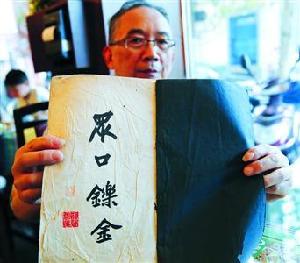 眾口鑠金